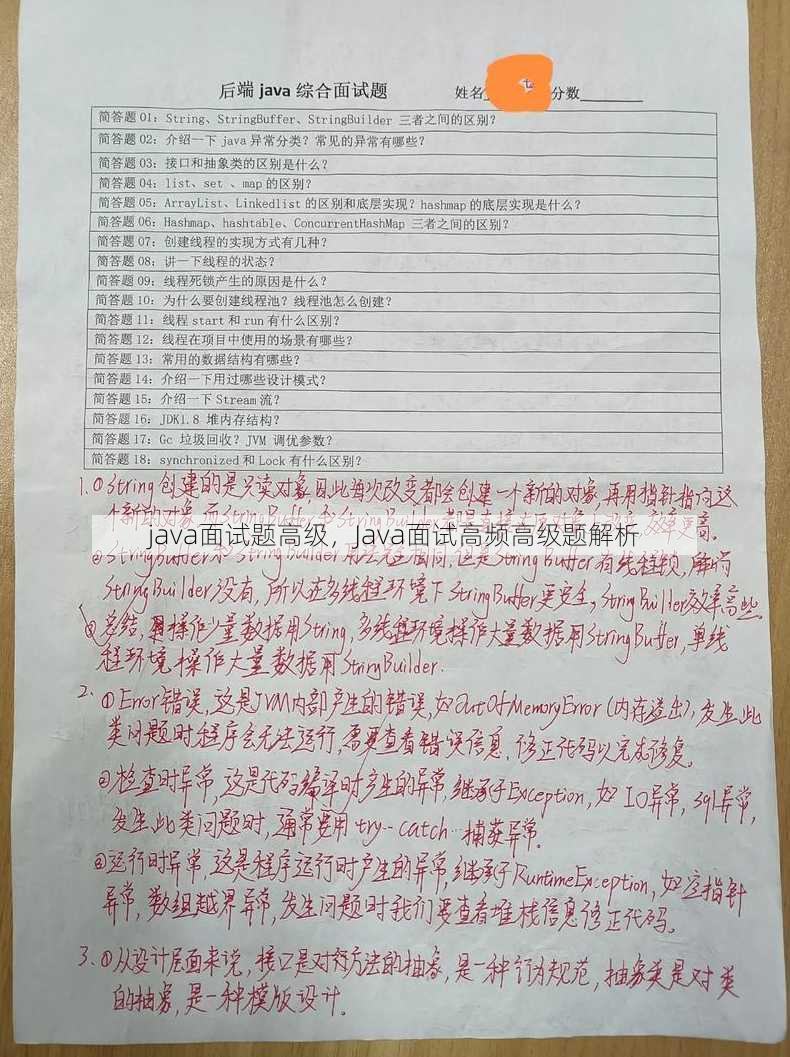 后端 java 综合面试题 姓名 分数
简答题 01：String、StringBuffer、StringBuilder 三者之间的区别？
简答题 02：介绍一下 java 异常分类？常见的异常有哪些？
简答题 03：接口和抽象类的区别是什么？
简答题 04：list、set 、map 的区别？
简答题 05：ArrayList、Linkedlist 的区别和底层实现？hashmap 的底层实现是什么？
简答题 06：Hashmap、hashtable、ConcurrentHashMap 三者之间的区别？
简答题 07：创建线程的实现方式有几种？
简答题 08：讲一下线程的状态？
简答题 09：线程死锁产生的原因是什么？
简答题 10：为什么要创建线程池？线程池怎么创建？
简答题 11：线程 start 和 run 有什么区别？
简答题 12：线程在项目中使用的场景有哪些？
简答题 13：常用的数据结构有哪些？
简答题 14：介绍一下用过哪些设计模式？
简答题 15：介绍一下 Stream 流？
简答题 16：JDK1.8 堆内存结构？
简答题 17：Gc 垃圾回收？JVM 调优参数？
简答题 18：synchronized 和 Lock 有什么区别？
1. ①String 创建的是只读对象,因此每次改变都会创建一个新的对象,再用指针指向这
个新的对象,而StringBuffer和StringBuilder都是直接 对象 效率更高。
java面试题高级，Java面试高频高级题解析
②StringBuffer和StringBuilder用法完全相同,但是StringBuffer有线程锁,
StringBuilder没有,所以在多线程环境下StringBuffer更安全,StringBuilder效率高些
总结,操作少量数据用String,多线程环境操作大量数据用StringBuffer,单线
程环境操作大量数据用StringBuilder.
2. ①Error错误,这是JVM内部产生的错误,如OutOfMemoryError(内存溢出),发生此
类问题时程序会无法运行,需要查看错误信息、修正代码以完成修复。
②检查时异常,这是代码编译时产生的异常,继承于Exception,如IO异常,sql异常,
发生此类问题时,通常要用try--catch…捕获异常。
③运行时异常,这是程序运行时产生的异常,继承于RuntimeException,如空指针
异常,数组越界异常,发生问题时我们要查看堆栈信息修正代码。
3. ①从设计层面来说,接口是对方法的抽象,是一种行为规范,抽象类是对类
的抽象,是一种模版设计。